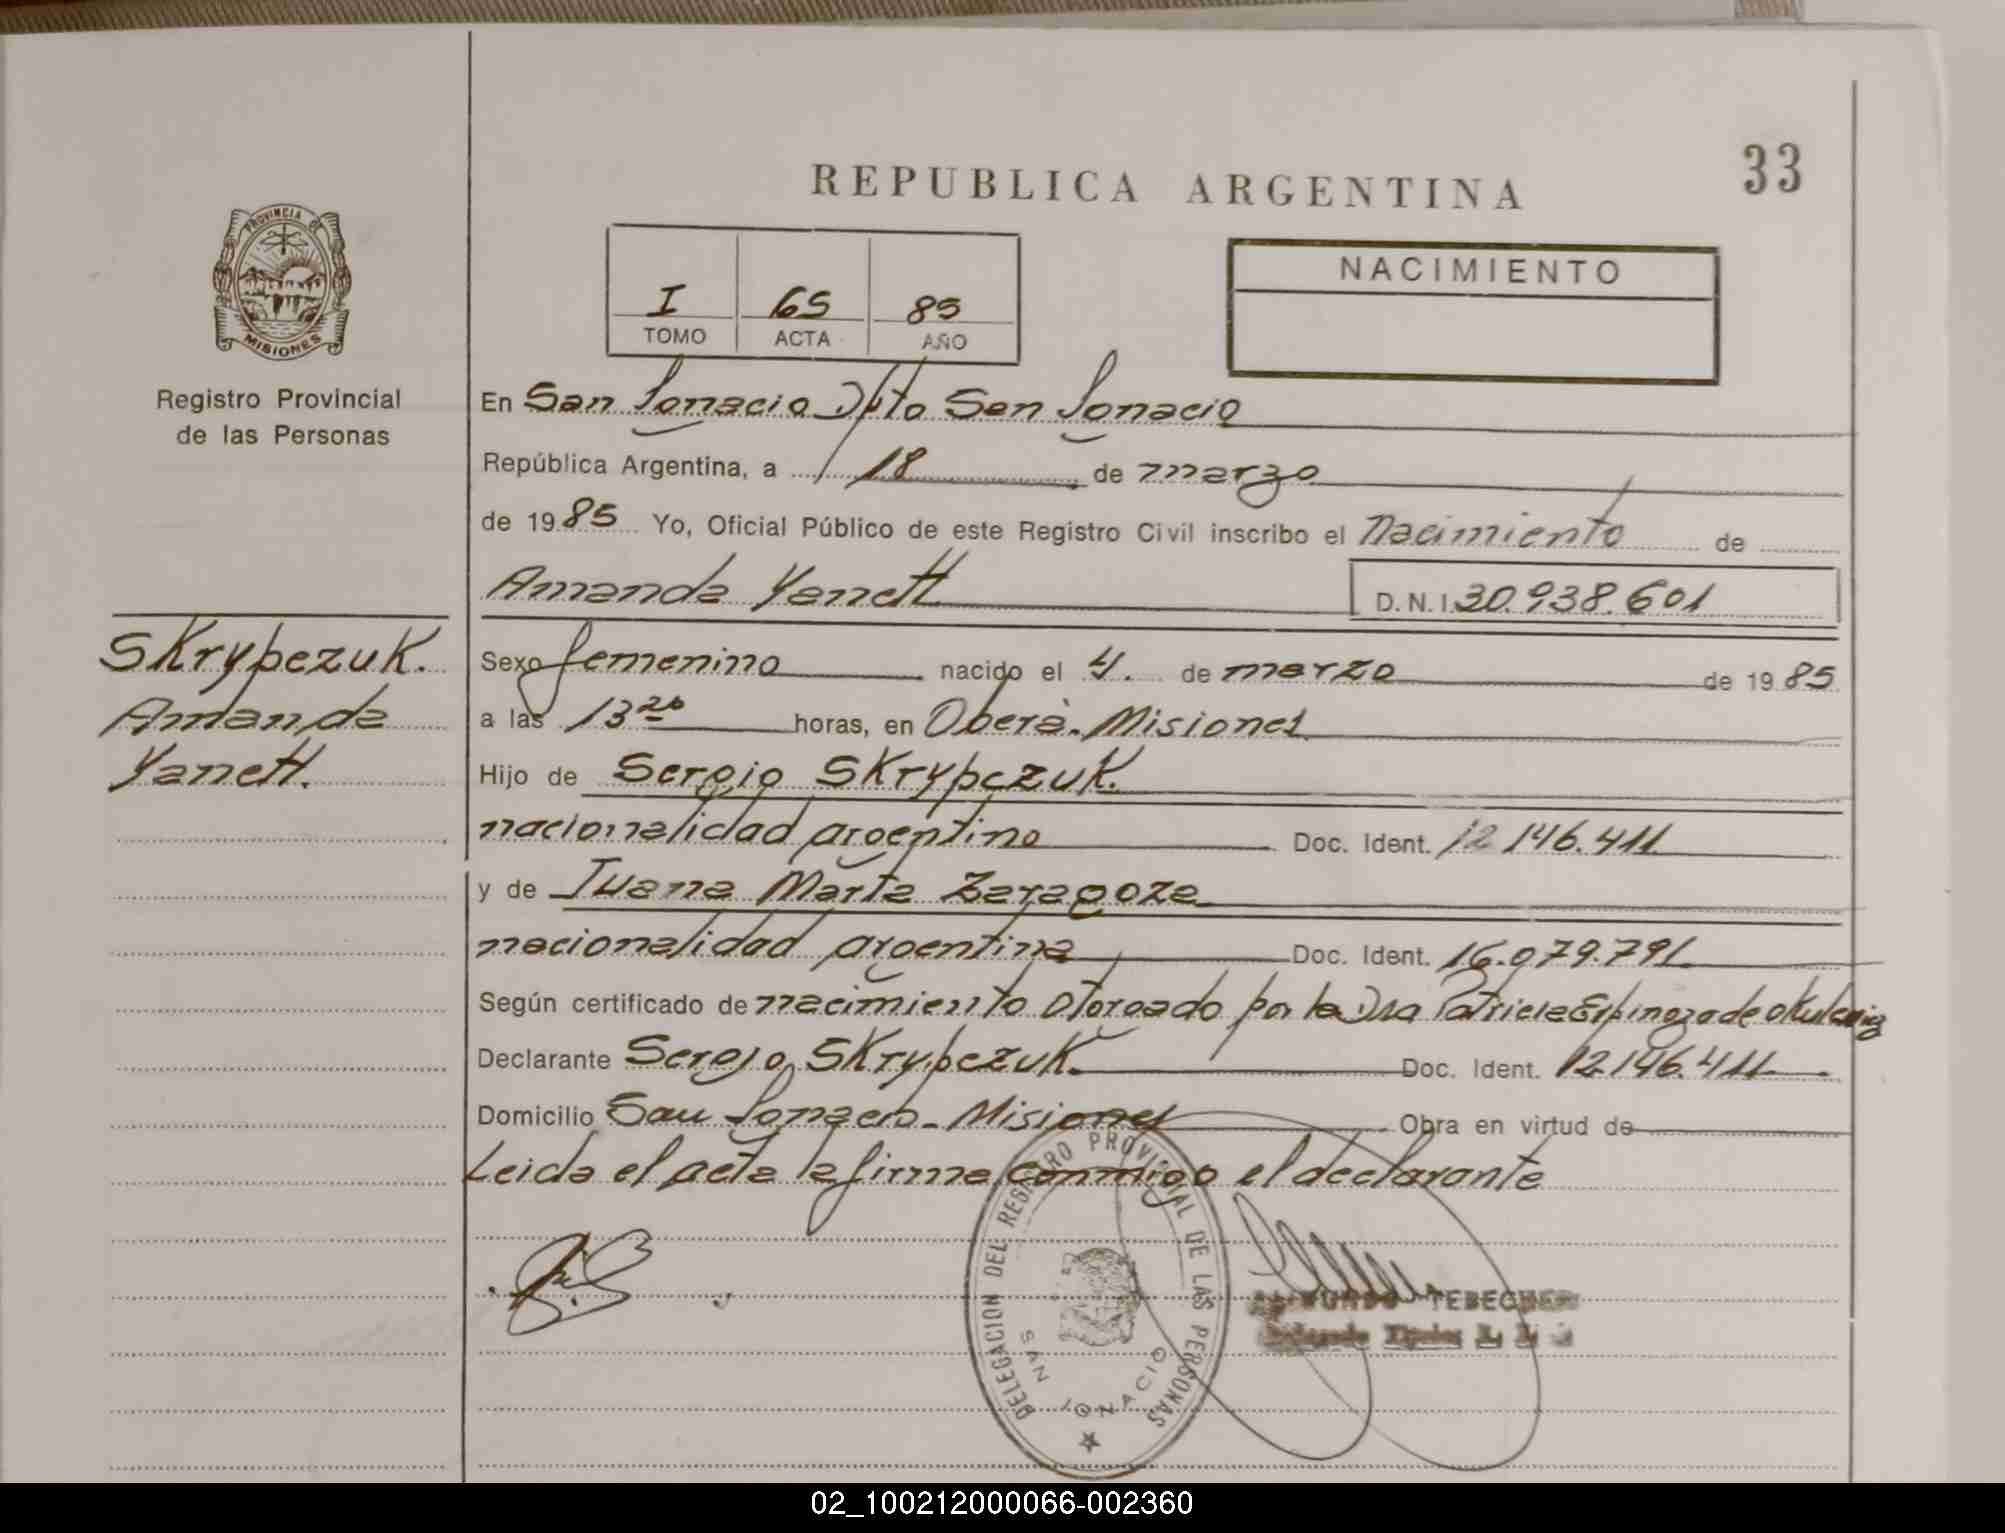 33
REPUBLICA ARGENTINA
PROVINCIA DE
MISIONES
Registro Provincial
de las Personas
I 65 85
TOMO ACTA AÑO
NACIMIENTO
En San Ignacio Dpto San Ignacio
República Argentina, a 18 de marzo
de 1985 Yo, Oficial Público de este Registro Civil inscribo el Nacimiento de
Amanda Yanett D.N.I. 30.938.601
Skrypczuk.
Amanda
Yanett.
Sexo femenino nacido el 4. de marzo de 1985
a las 13 20 horas, en Oberá. Misiones
Hijo de Sergio Skrypczuk.
nacionalidad argentino Doc. Ident. 12 146.411
y de Juana Marta Zaragoza
nacionalidad argentina Doc. Ident. 16.079.791
Según certificado de nacimiento otorgado por la Dra Patricia Espinoza de
Declarante Sergio Skrypczuk Doc. Ident. 12.146.411
Domicilio San Ignacio - Misiones Obra en virtud de
Leida el acta la firma conmigo el declarante
DELEGACION DEL REGISTRO PROVINCIAL DE LAS PERSONAS
SAN IGNACIO
02_100212000066-002360